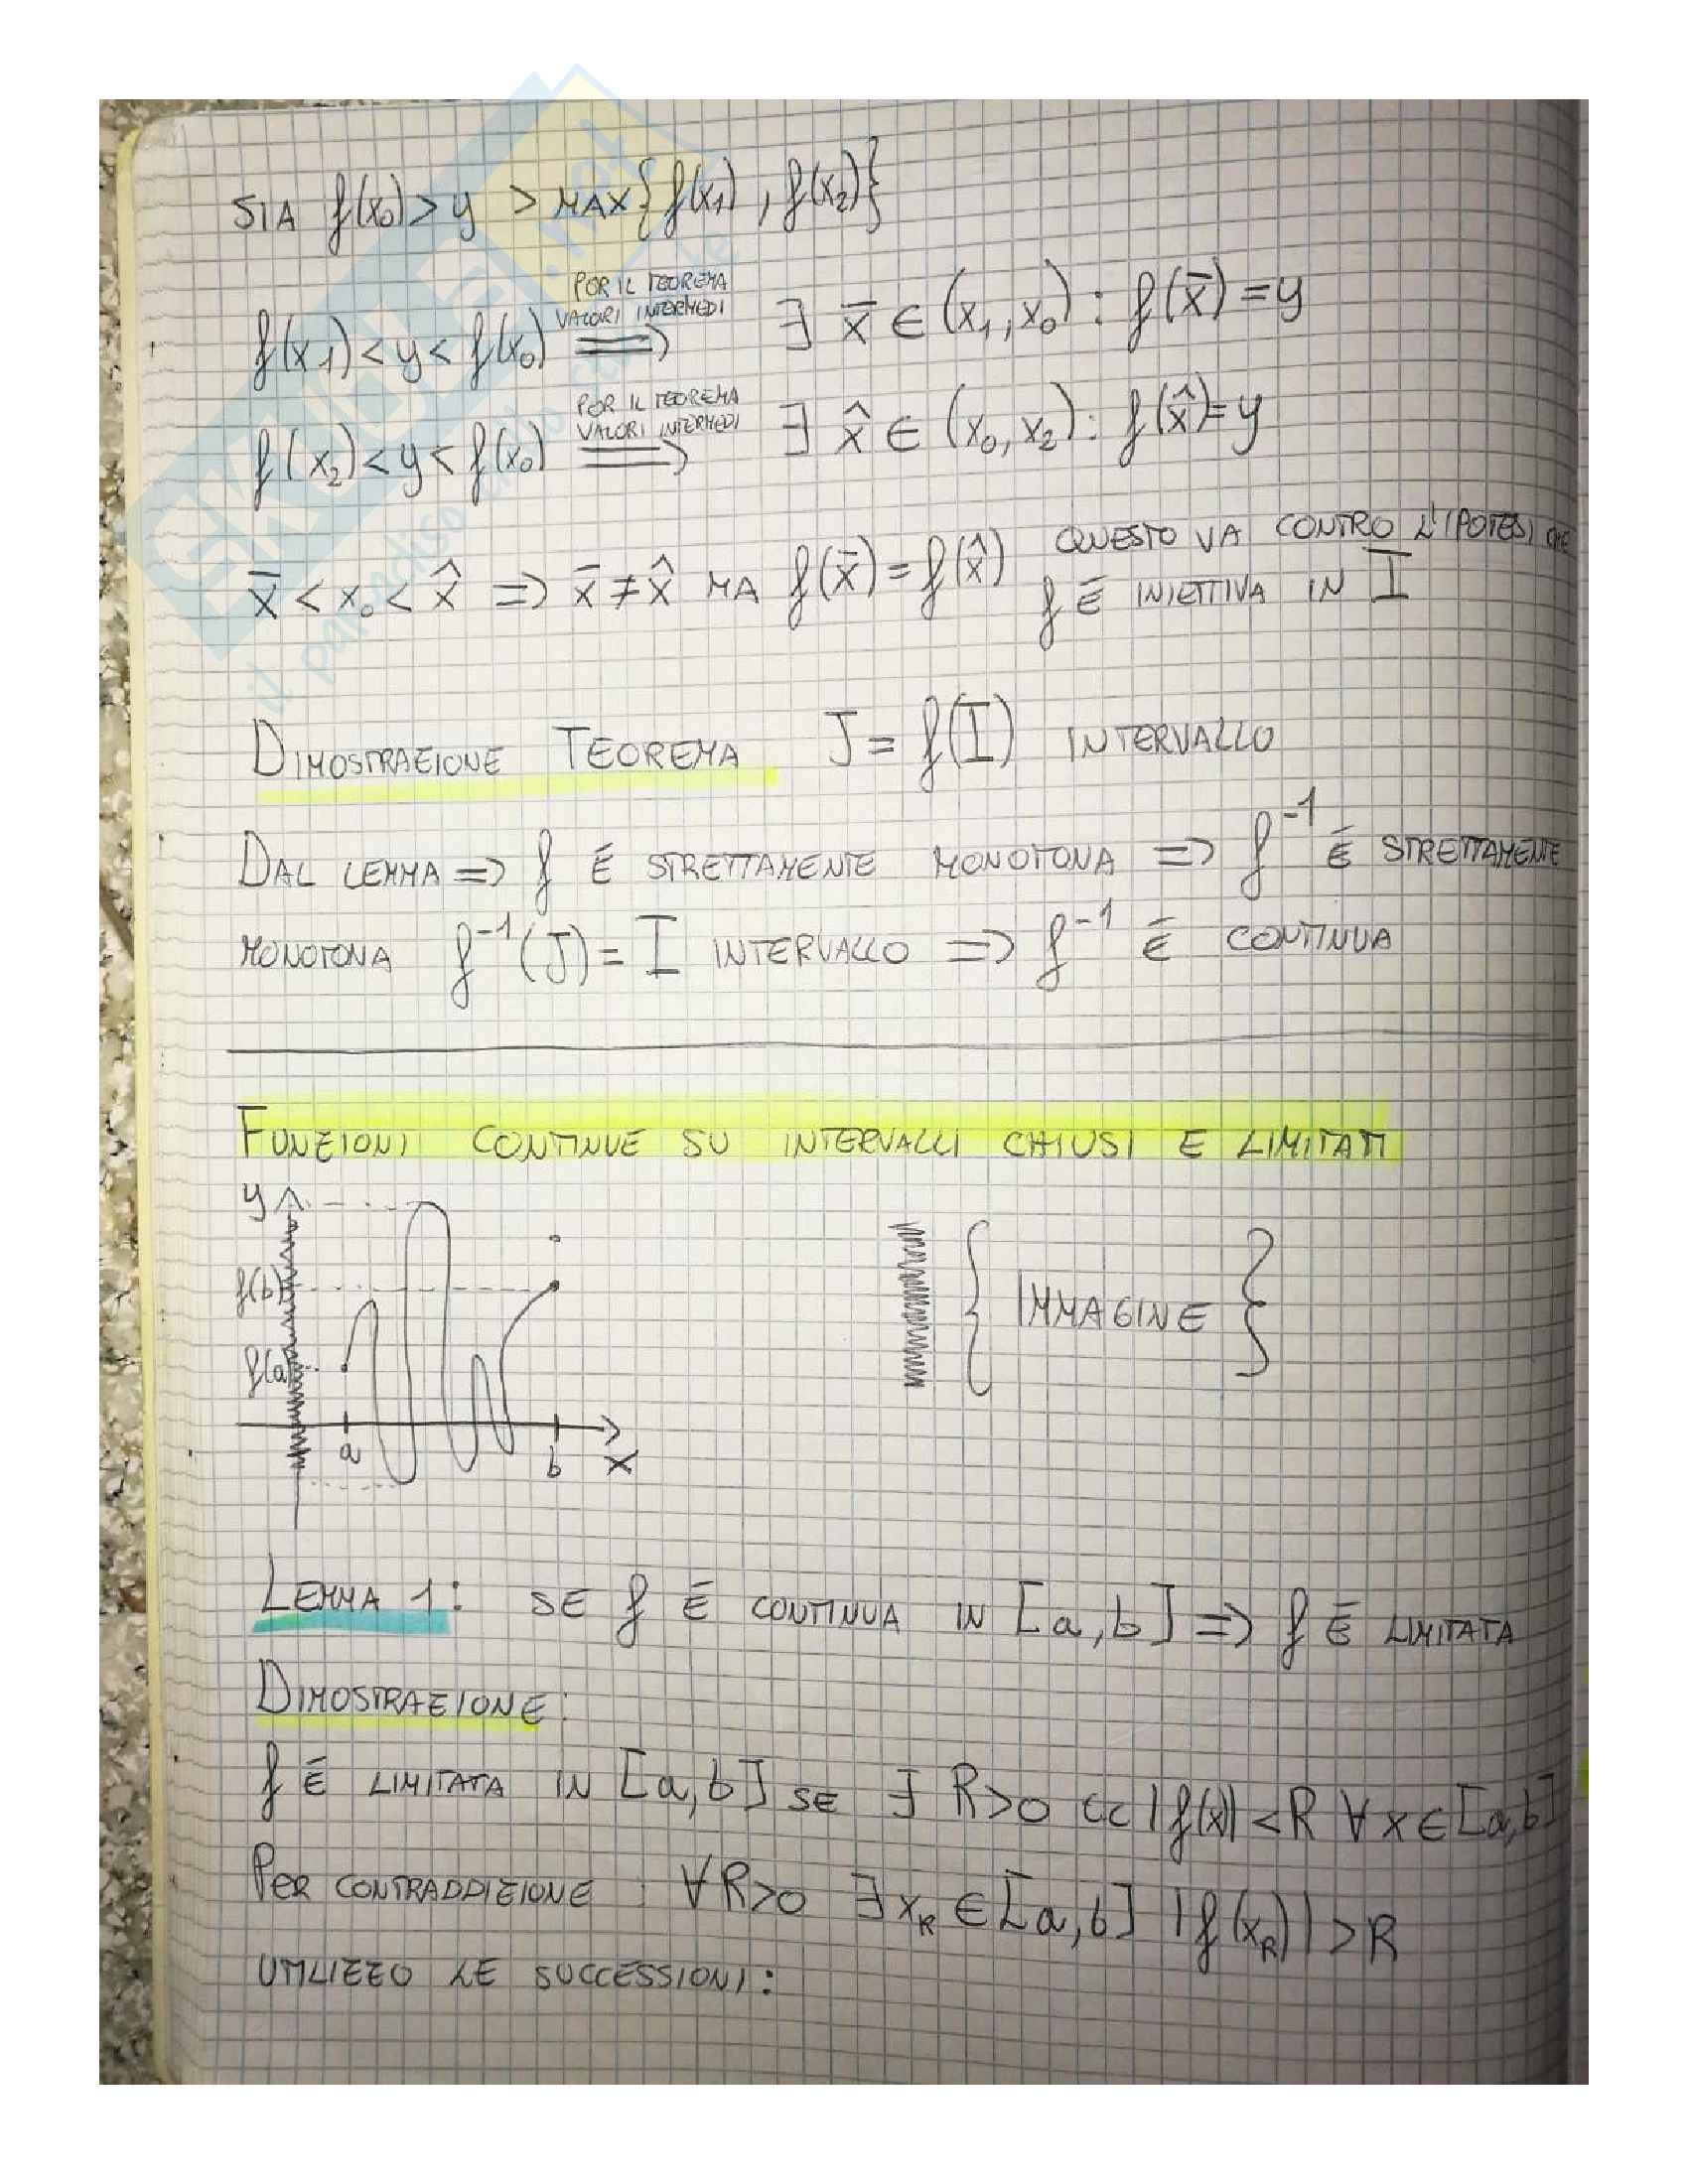 SIA f(x₀) > y > MAX{f(x₁), f(x₂)}
POR IL TEOREMA
VALORI INTERMEDI
f(x₁) < y < f(x₀) ⟹ ∃ x̄ ∈ (x₁, x₀) : f(x̄) = y
POR IL TEOREMA
VALORI INTERMEDI
f(x₂) < y < f(x₀) ⟹ ∃ x̂ ∈ (x₀, x₂) : f(x̂) = y
QUESTO VA CONTRO L'IPOTESI CHE
x̄ < x₀ < x̂ ⇒ x̄ ≠ x̂ MA f(x̄) = f(x̂) f É INIETTIVA IN I
DIMOSTRAZIONE TEOREMA J = f(I) INTERVALLO
DAL LEMMA ⇒ f É STRETTAMENTE MONOTONA ⇒ f⁻¹ É STRETTAMENTE
MONOTONA f⁻¹(J) = I INTERVALLO ⇒ f⁻¹ É CONTINUA
FUNZIONI CONTINUE SU INTERVALLI CHIUSI E LIMITATI
y
f(b)
f(a)
a
b
x
{ IMMAGINE }
LEMMA 1: SE f É CONTINUA IN [a, b] ⇒ f É LIMITATA
DIMOSTRAZIONE:
f É LIMITATA IN [a, b] SE ∃ R>0 cc |f(x)| < R ∀ x ∈ [a, b]
PER CONTRADDIZIONE : ∀ R>0 ∃ x_R ∈ [a, b] |f(x_R)| > R
UTILIZZO LE SUCCESSIONI:
SKUOLA.net
il paradiso dello studente